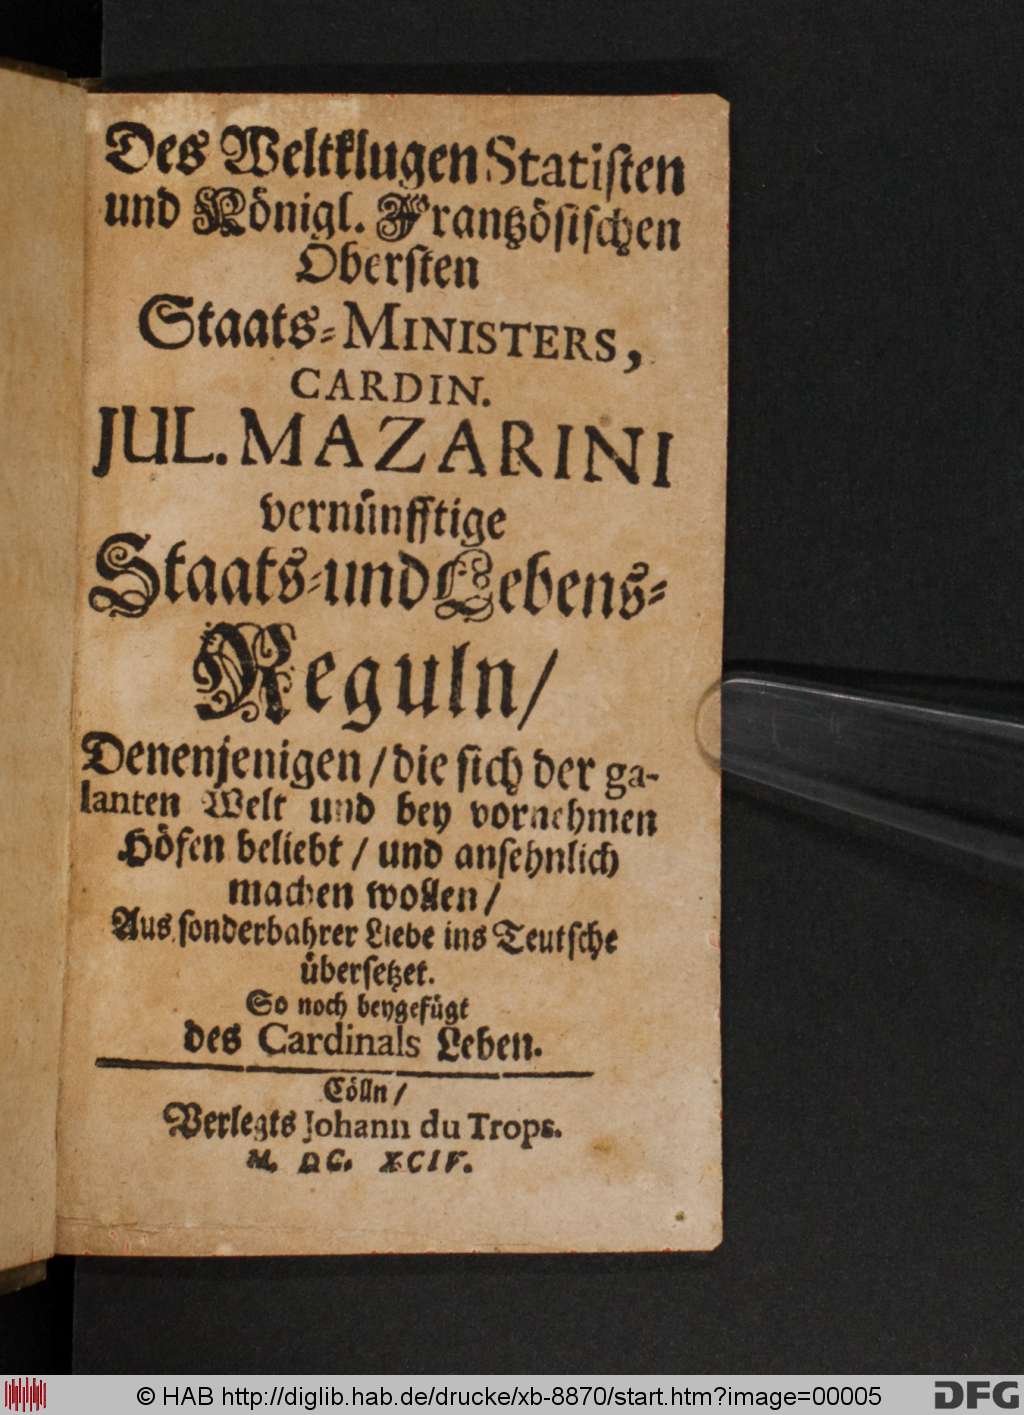 Des Weltklugen Statiſten
und Königl. Frantzöſiſchen
Oberſten
Staats-MINISTERS,
CARDIN.
JUL. MAZARINI
vernünfftige
Staats-und Lebens-
Reguln/
Denenjenigen/ die ſich der ga-
lanten Welt und bey vornehmen
Höfen beliebt/ und anſehnlich
machen wollen/
Aus ſonderbahrer Liebe ins Teutſche
überſetzet.
So noch beygefügt
des Cardinals Leben.
Cölln/
Verlegts Johann du Trops.
M. DC. XCIV.
© HAB http://diglib.hab.de/drucke/xb-8870/start.htm?image=00005
DFG